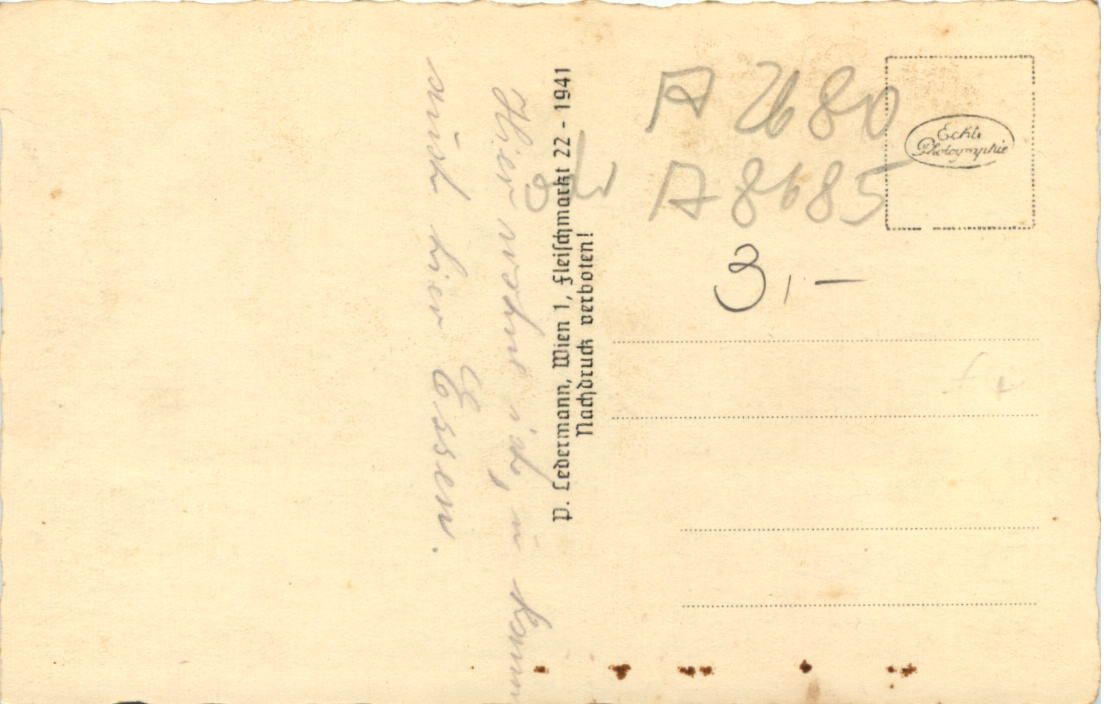 Hier wohne ich, u kann
auch hier Essen.
P. Ledermann, Wien 1, Fleischmarkt 22 - 1941
Nachdruck verboten!
A 2680
A 8685
3,—
Echte
Photographie